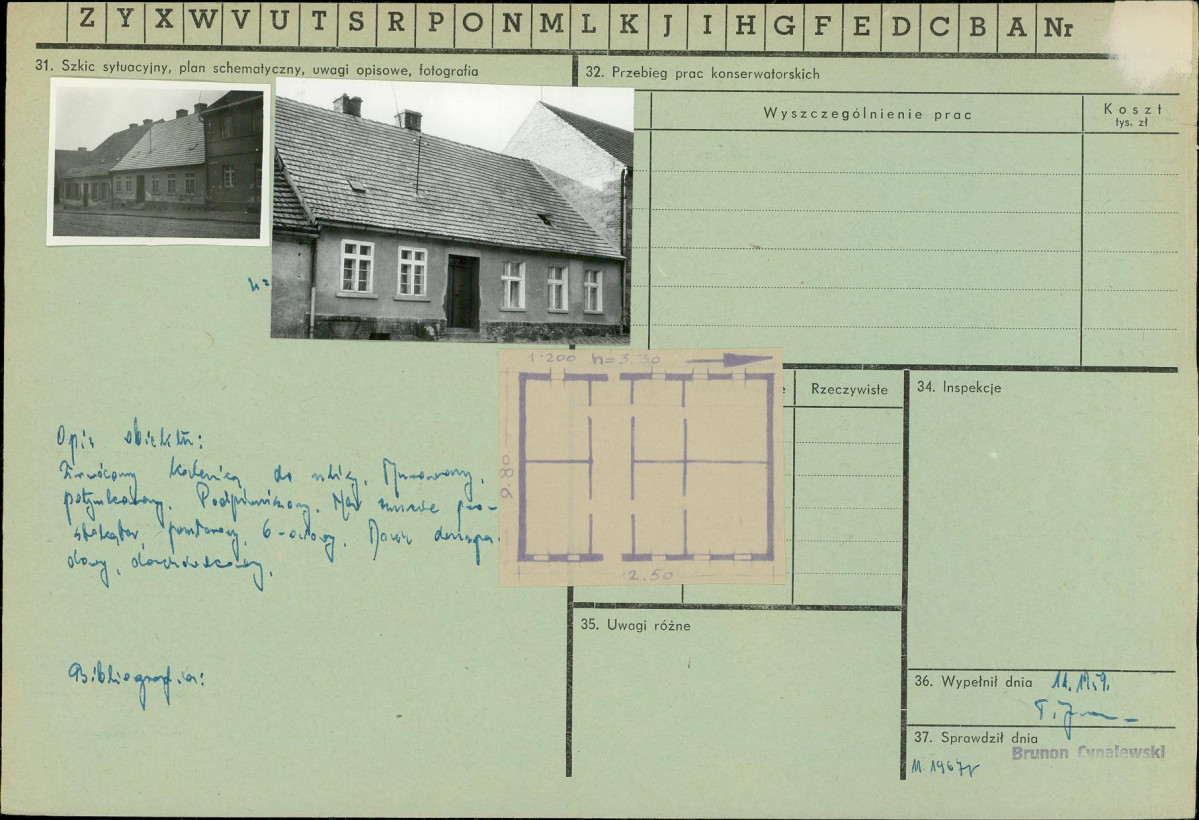 Z Y X W V U T S R P O N M L K J I H G F E D C B A Nr
31. Szkic sytuacyjny, plan schematyczny, uwagi opisowe, fotografia
32. Przebieg prac konserwatorskich
Wyszczególnienie prac
Koszt
tys. zł
h=
1:200 h=3.30
9.80
2.50
Rzeczywiste
34. Inspekcje
Opis obiektu:
Zwrócony kalenicą do ulicy. Murowany,
potynkowany. Podpiwniczony. Na
parterowy, 6-osiowy. Dach
dwy, dachówczany.
Bibliografia:
35. Uwagi różne
36. Wypełnił dnia
37. Sprawdził dnia
Brunon Cynalewski
11.1967r